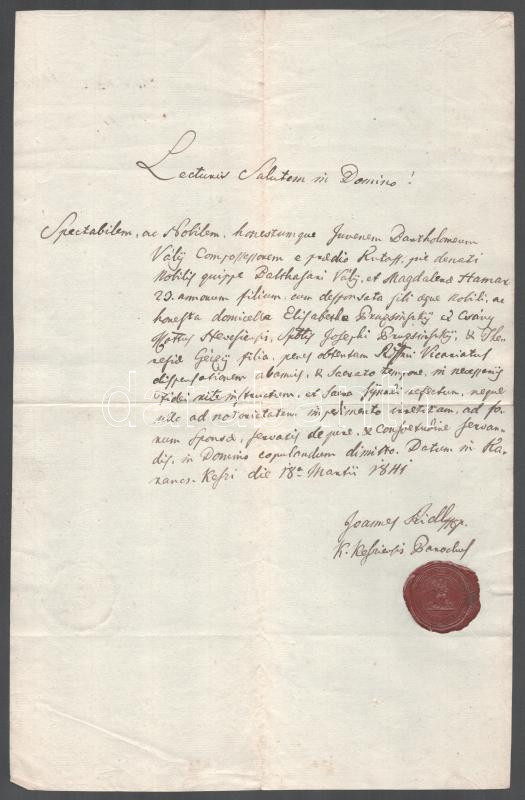 Lecturis Salutem in Domino!
Spectabilem, ac Nobilem, honestumque Juvenem Bartholomeum
Vályi Compossessorem e praedio Kutass, pie denati
Nobilis quippe Balthasari Vályi, et Magdalena Hamar
23. annorum filium, cum desponsata sibi aeque Nobili, ac
honesta domicella Elisabetha ex
Cottus Hevesiensis, Josephi & The-
resiae filia, penes obtentam Vicariatus
dispensationem a bannis, & Sacrato tempore, in necessariis
fidei rite instructum, et Sacra Synaxi refectum, neque
ullo ad notorietatem impedimento irretitum, ad fo-
rum Sponsae, servatis de jure, & Consvetudine servan-
dis, in Domino copulandum dimitto. Datum in Ka-
rancs-Keszi die 18a Martii 1841
Joannes
K. Kesziensis Parochus
darabanth